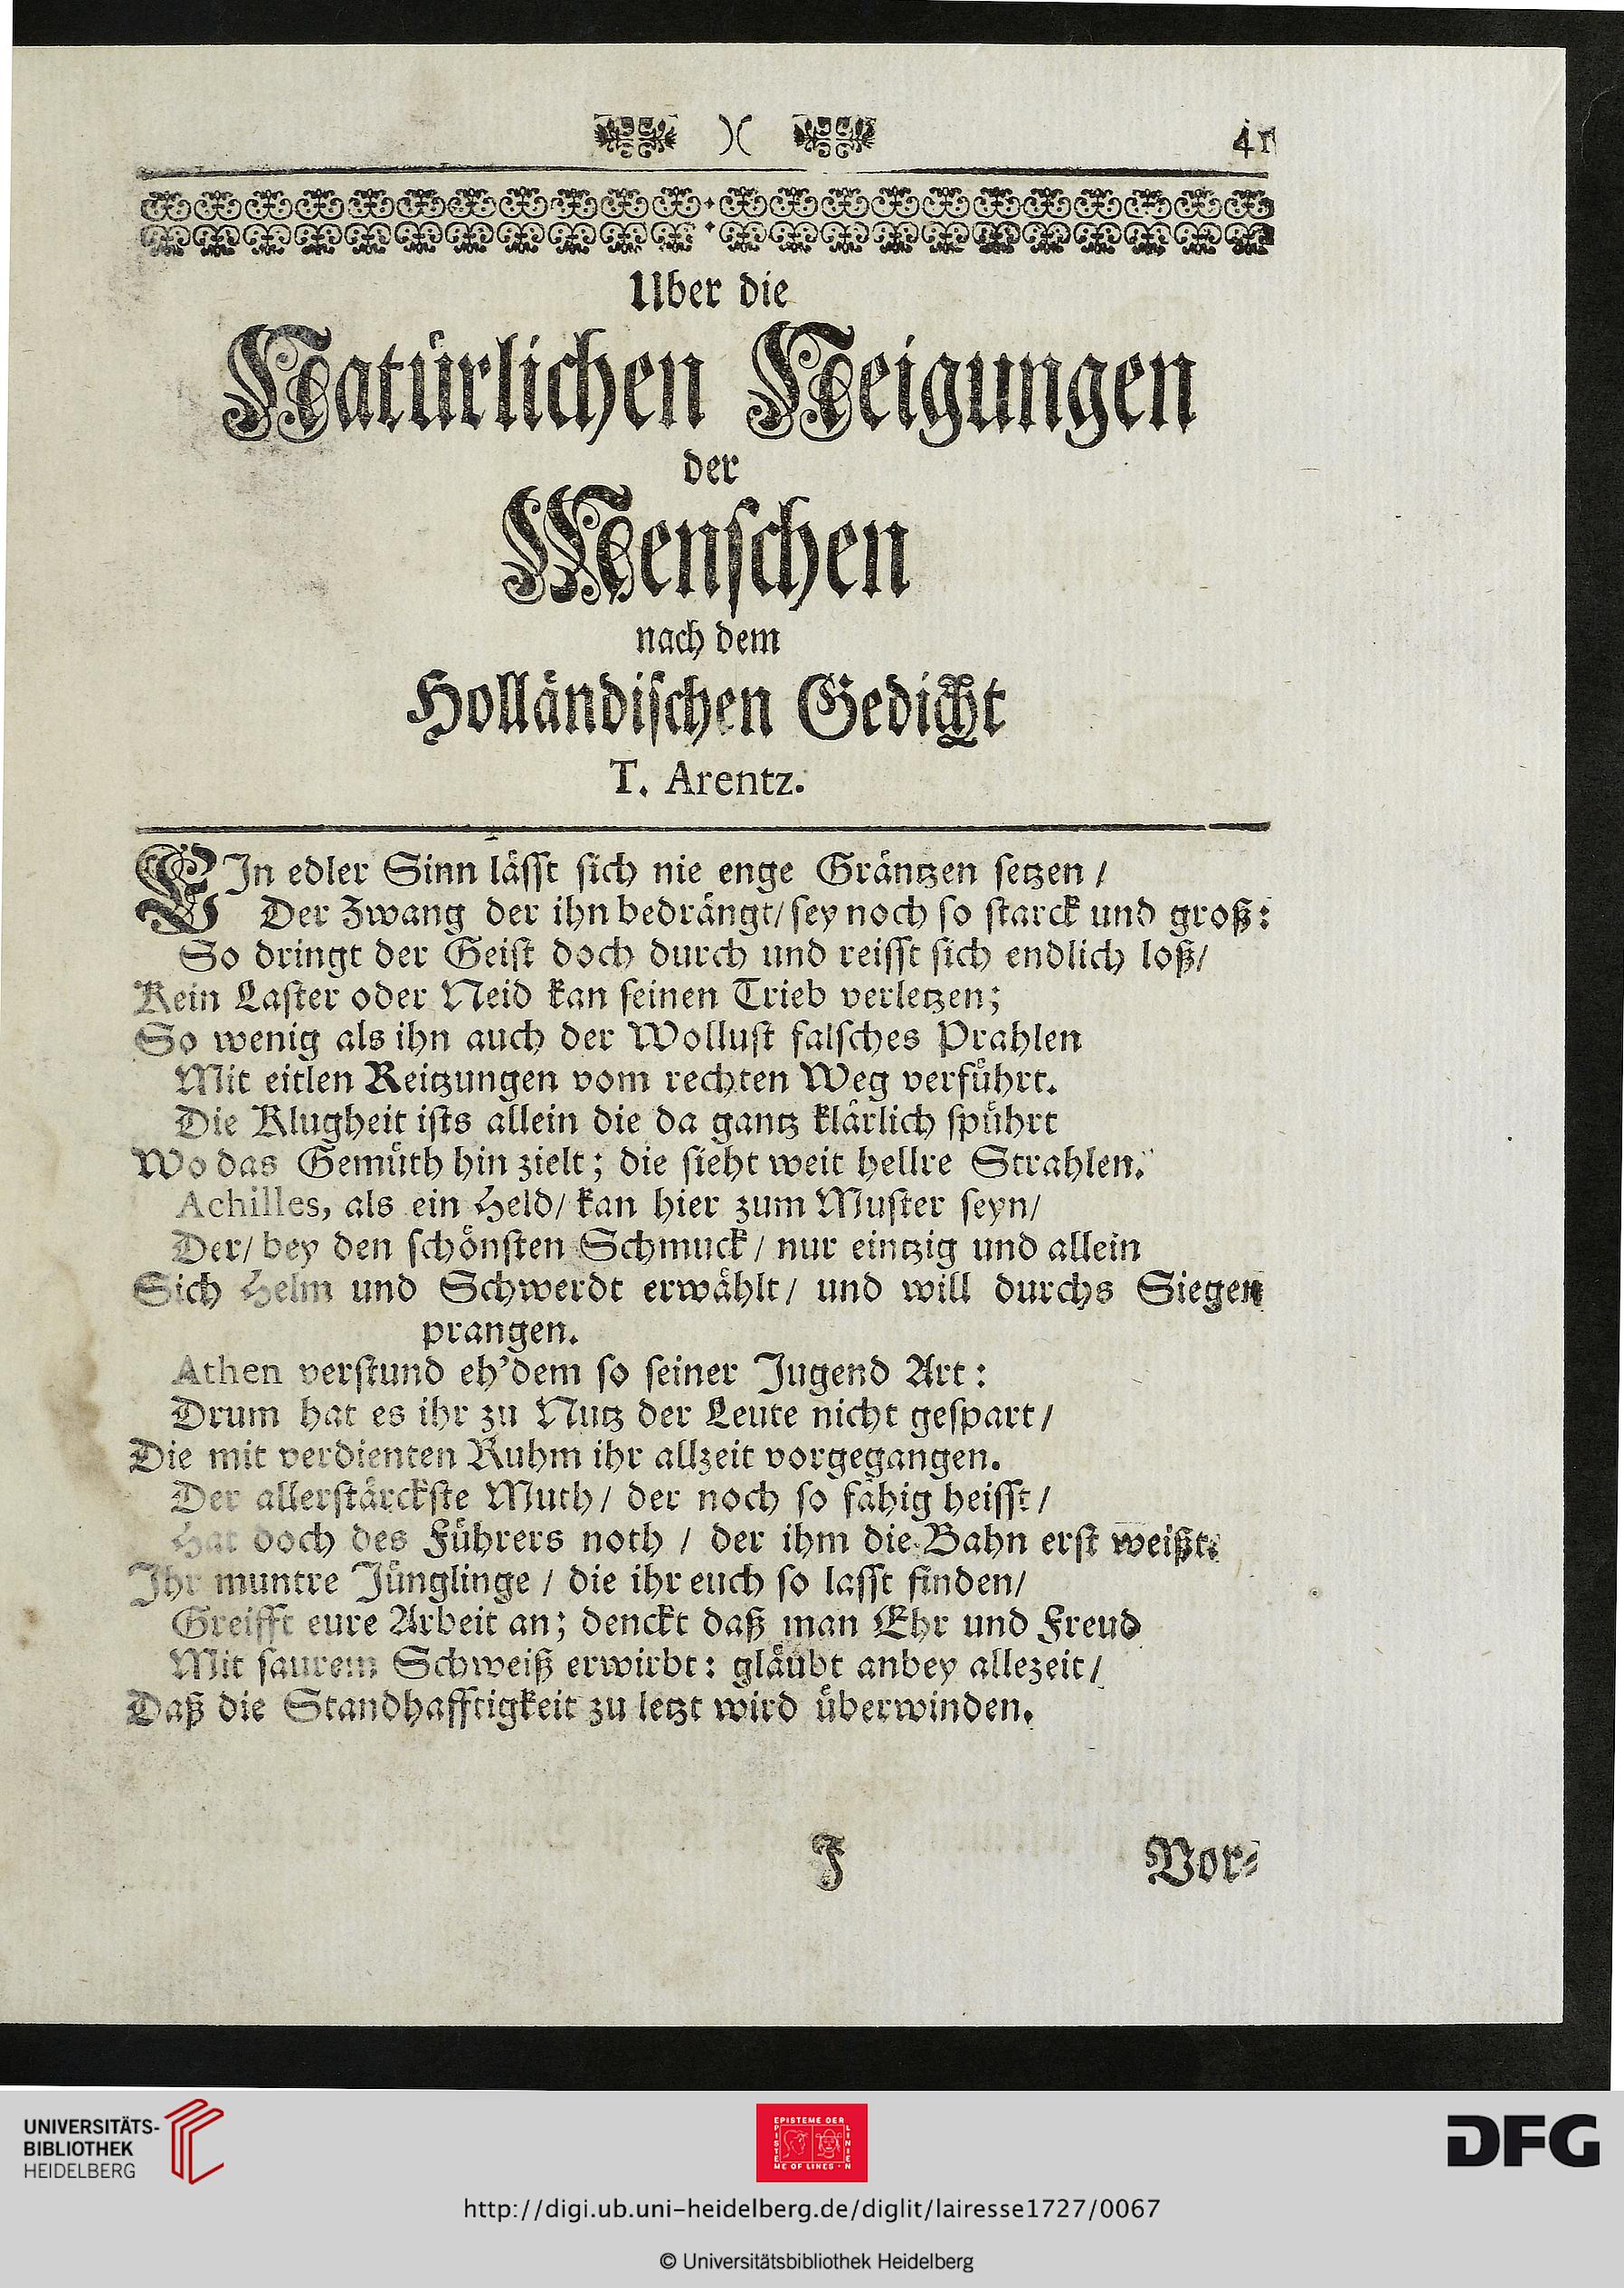 )( 41
Uber die
Natürlichen Neigungen
der
Menschen
nach dem
Holländischen Gedicht
T. Arentz.
EIn edler Sinn lässt sich nie enge Gräntzen setzen /
Der Zwang der ihn bedrängt/ sey noch so starck und groß:
So dringt der Geist doch durch und reisst sich endlich loß/
Kein Laster oder Neid kan seinen Trieb verletzen;
So wenig als ihn auch der Wollust falsches Prahlen
Mit eitlen Reitzungen vom rechten Weg verführt.
Die Klugheit ists allein die da gantz klärlich spührt
Wo das Gemüth hin zielt; die sieht weit hellre Strahlen.
Achilles, als ein Held/ kan hier zum Muster seyn/
Der/ bey den schönsten Schmuck / nur eintzig und allein
Sich Helm und Schwerdt erwählt / und will durchs Siegen
prangen.
Athen verstund eh'dem so seiner Jugend Art:
Drum hat es ihr zu Nutz der Leute nicht gespart /
Die mit verdienten Ruhm ihr allzeit vorgegangen.
Der allerstärckste Muth / der noch so fähig heisst /
Hat doch des Führers noth / der ihm die Bahn erst weißt.
Ihr muntre Jünglinge / die ihr euch so lasst finden/
Greifft eure Arbeit an; denckt daß man Ehr und Freud
Mit saurem Schweiß erwirbt: gläubt anbey allezeit /
Daß die Standhafftigkeit zu letzt wird überwinden.
J Vor-
UNIVERSITÄTS-
BIBLIOTHEK
HEIDELBERG
EPISTEME DER
LINIEN
EPISTE
ME OF LINES
DFG
http://digi.ub.uni-heidelberg.de/diglit/lairesse1727/0067
© Universitätsbibliothek Heidelberg